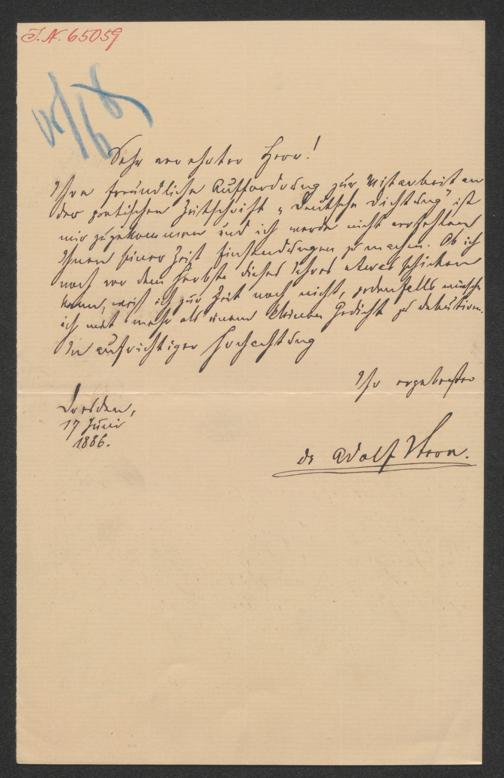 I.N. 65059
18/6 8
Sehr verehrter Herr!
Ihre freundliche Aufforderung zur Mitarbeit an
der poetischen Zeitschrift „Deutsche Dichtung" ist
mir zugekommen und ich werde nicht verfehlen
Ihnen seiner Zeit Einsendungen zu machen. Ob ich
noch vor dem Herbste dieses Jahres etwas schicken
kann, weiß ich zur Zeit noch nicht, jedenfalls wünsche
ich mit mehr als einem kleinen Gedicht zu debütiren.
In aufrichtiger Hochachtung
Ihr ergebenster
Dresden,
17 Juni
1886.
Dr Adolf Stern.